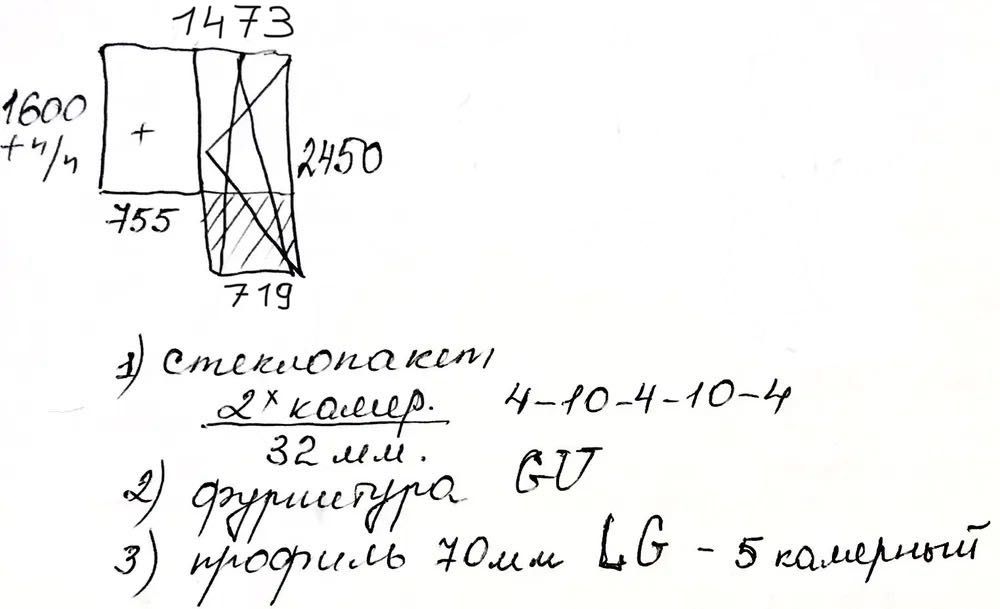 1473
1600
+ч/ч
+
2450
755
719
1) стеклопакет
2х камер. 4-10-4-10-4
32 мм.
2) фурнитура GU
3) профиль 70мм LG - 5 камерный